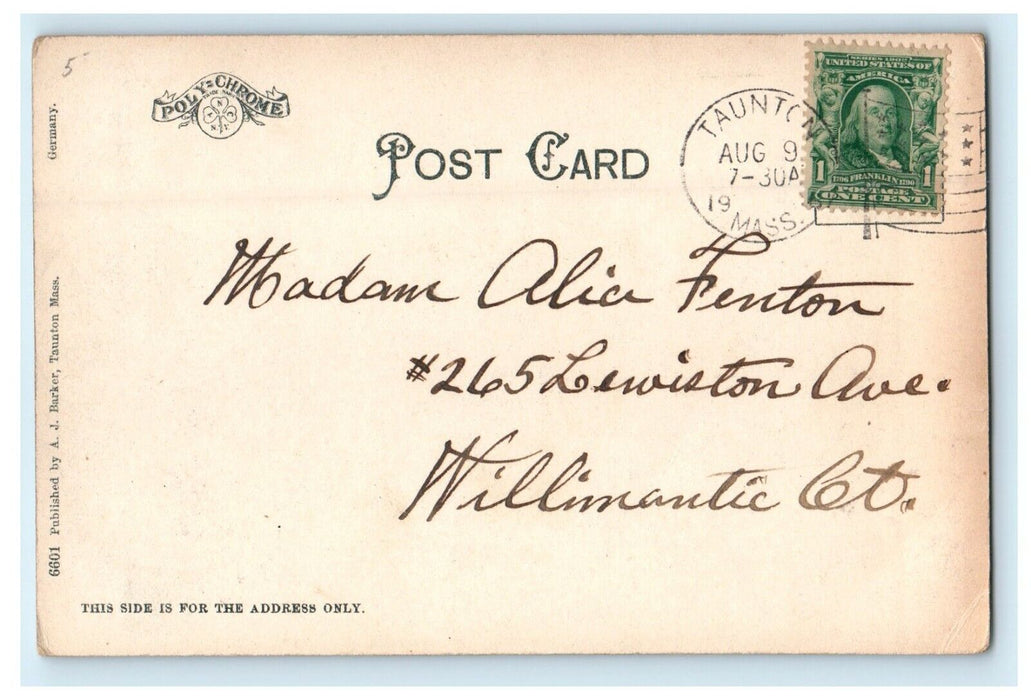 5
POLY=CHROME
POST CARD
TAUNTON
AUG 9
7-30A
19
MASS.
SERIES 1902
UNITED STATES OF
AMERICA
1 1706 FRANKLIN 1790 1
POSTAGE
ONE CENT
Madam Alice Fenton
#265 Lewiston Ave.
Willimantic Ct.
Germany.
6601 Published by A. J. Barker, Taunton Mass.
THIS SIDE IS FOR THE ADDRESS ONLY.